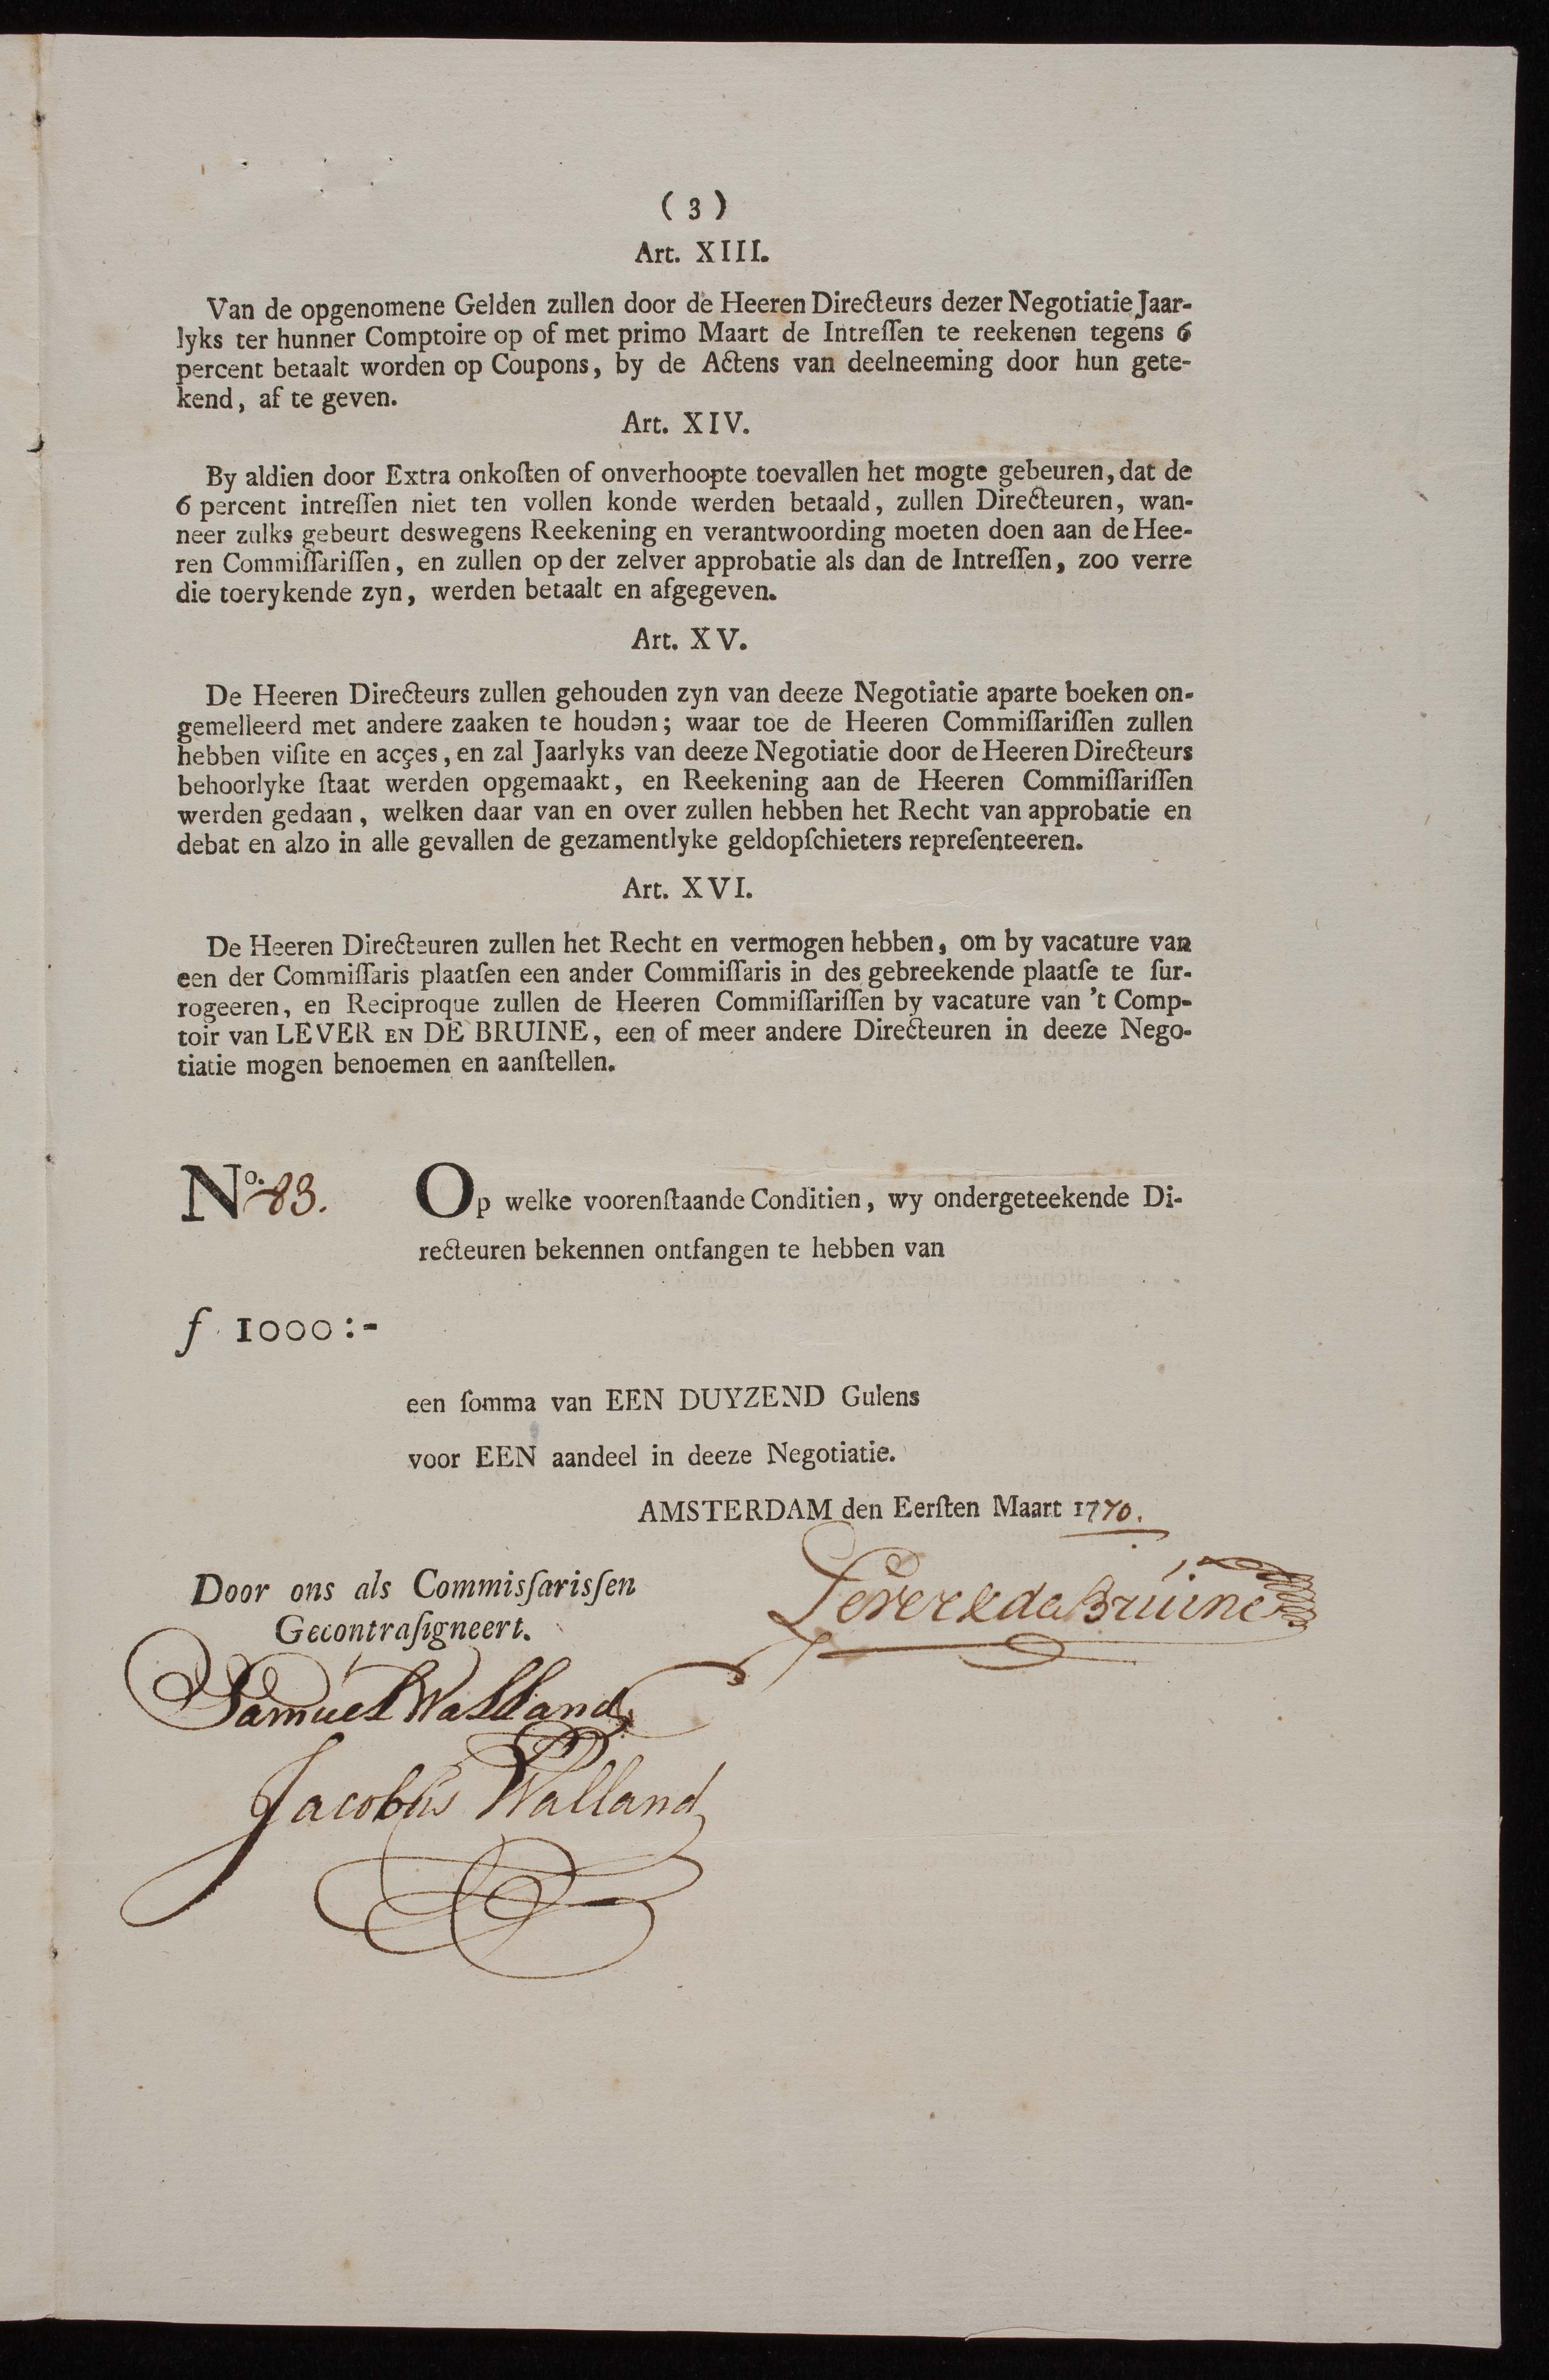 ( 3 )
Art. XIII.
Van de opgenomene Gelden zullen door de Heeren Directeurs dezer Negotiatie Jaar-
lyks ter hunner Comptoire op of met primo Maart de Intreſſen te reekenen tegens 6
percent betaalt worden op Coupons, by de Actens van deelneeming door hun gete-
kend, af te geven.
Art. XIV.
By aldien door Extra onkoſten of onverhoopte toevallen het mogte gebeuren, dat de
6 percent intreſſen niet ten vollen konde werden betaald, zullen Directeuren, wan-
neer zulks gebeurt deswegens Reekening en verantwoording moeten doen aan de Hee-
ren Commiſſariſſen, en zullen op der zelver approbatie als dan de Intreſſen, zoo verre
die toerykende zyn, werden betaalt en afgegeven.
Art. XV.
De Heeren Directeurs zullen gehouden zyn van deeze Negotiatie aparte boeken on-
gemelleerd met andere zaaken te houdən; waar toe de Heeren Commiſſariſſen zullen
hebben viſite en acçes, en zal Jaarlyks van deeze Negotiatie door de Heeren Directeurs
behoorlyke ſtaat werden opgemaakt, en Reekening aan de Heeren Commiſſariſſen
werden gedaan, welken daar van en over zullen hebben het Recht van approbatie en
debat en alzo in alle gevallen de gezamentlyke geldopſchieters repreſenteeren.
Art. XVI.
De Heeren Directeuren zullen het Recht en vermogen hebben, om by vacature van
een der Commiſſaris plaatſen een ander Commiſſaris in des gebreekende plaatſe te ſur-
rogeeren, en Reciproque zullen de Heeren Commiſſariſſen by vacature van 't Comp-
toir van LEVER EN DE BRUINE, een of meer andere Directeuren in deeze Nego-
tiatie mogen benoemen en aanſtellen.
No. 83. Op welke voorenſtaande Conditien, wy ondergeteekende Di-
recteuren bekennen ontfangen te hebben van
f 1000:-
een ſomma van EEN DUYZEND Gulens
voor EEN aandeel in deeze Negotiatie.
AMSTERDAM den Eerſten Maart 1770.
Door ons als Commisſarisſen
Gecontraſigneert.
Lever & de Bruine
Samuel Walland
Jacobus Walland